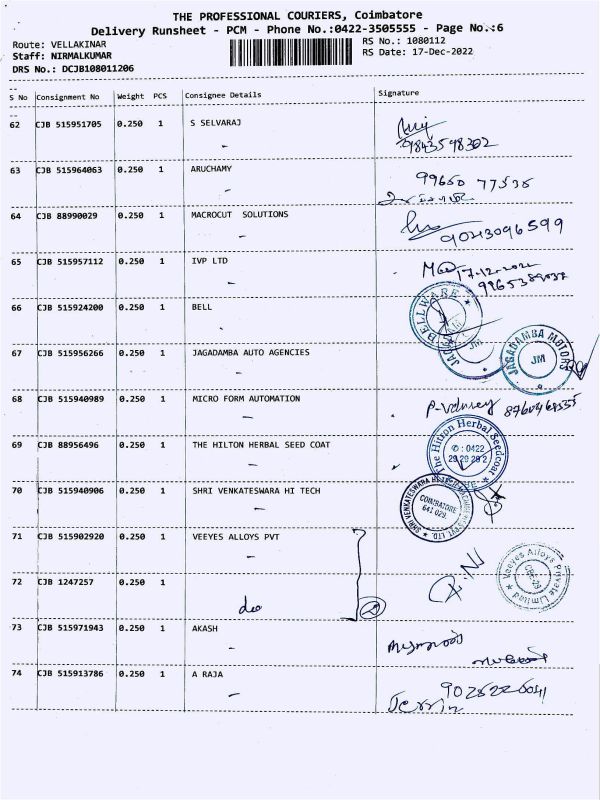 THE PROFESSIONAL COURIERS, Coimbatore
Delivery Runsheet - PCM - Phone No.:0422-3505555 - Page No.:6
Route: VELLAKINAR
RS No.: 1080112
Staff: NIRMALKUMAR
RS Date: 17-Dec-2022
DRS No.: DCJB108011206
S No Consignment No Weight PCS Consignee Details Signature
62 CJB 515951705 0.250 1 S SELVARAJ
9843598302
63 CJB 515964063 0.250 1 ARUCHAMY
99650 77535
64 CJB 88990029 0.250 1 MACROCUT SOLUTIONS
9043096599
65 CJB 515957112 0.250 1 IVP LTD
17-12-2022
66 CJB 515924200 0.250 1 BELL
BELLWARE
67 CJB 515956266 0.250 1 JAGADAMBA AUTO AGENCIES
JM
JAGADAMBA MOTORS
JM
68 CJB 515940989 0.250 1 MICRO FORM AUTOMATION
69 CJB 88956496 0.250 1 THE HILTON HERBAL SEED COAT
The Hilton Herbal Seedcoat
✆ : 0422
29 29 29 2
70 CJB 515940906 0.250 1 SHRI VENKATESWARA HI TECH
SHRI VENKATESWARA
COIMBATORE
641 029.
71 CJB 515902920 0.250 1 VEEYES ALLOYS PVT
Veeyes Alloys Private Limited
CBE-29
72 CJB 1247257 0.250 1
do
2
73 CJB 515971943 0.250 1 AKASH
74 CJB 515913786 0.250 1 A RAJA